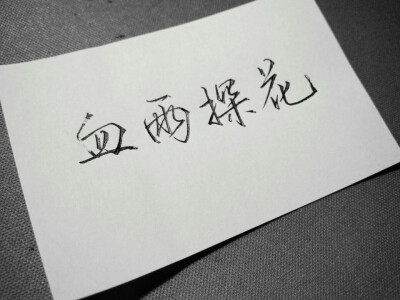 血雨探花